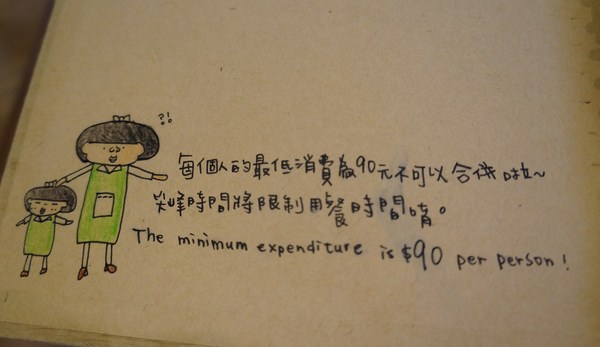 ?!
每個人的最低消費為90元不可以合併啦~
尖峰時間將限制用餐時間唷。
The minimum expenditure is $90 per person!